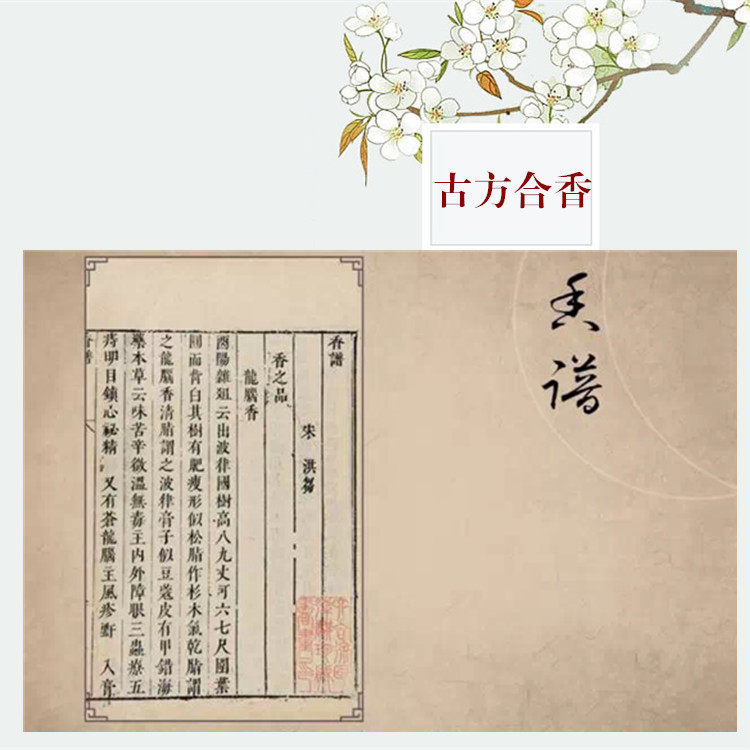 古方合香
香谱
香譜
宋 洪芻
香之品
龍腦香
酉陽雜俎云出波律國樹高八九丈可六七尺圍葉
圓而背白其樹有肥瘦形似松脂作杉木氣乾脂謂
之龍腦香清脂謂之波律膏子似豆蔻皮有甲錯海
藥本草云味苦辛微溫無毒主內外障眼三蟲療五
痔明目鎮心祕精 又有蒼龍腦主風疹 入膏